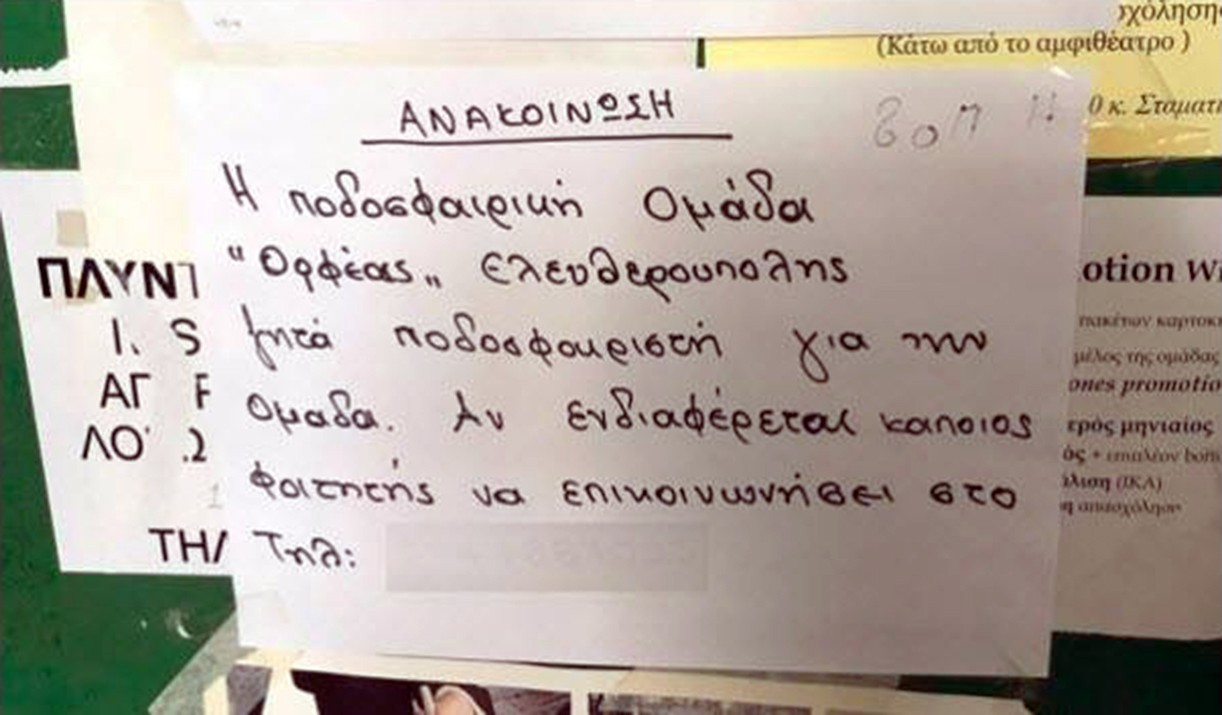 σχόλησης
(Κάτω από το αμφιθέατρο )
0 κ. Σταματ
ΑΝΑΚΟΙΝΩΣΗ
Η ποδοσφαιρική Ομάδα
"Ορφέας„ Ελευθερουπολης
ζητά ποδοσφαιριστή για την
Ομαδα. Αν ενδιαφέρεται καποιος
φοιτητής να επικοινωνήσει στο
Τηλ:
ΠΛΥΝΤ
Ι. S
ΑΓ
ΛΟ
ΤΗΛ
otion W
πακέτων καρτοκι
μέλος της ομάδας
ones promotio
ερός μηνιαίος
ός + επιπλέον bon
άλιση (ΙΚΑ)
η απασχόληση